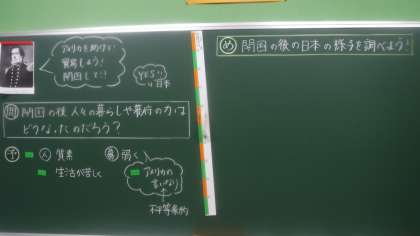 アメリカを助けて!
貿易しよう!
開国して!!
YES!!
by日本
問 開国の後、人々の暮らしや幕府の力は
どうなったのだろう?
予 人 質素
生活が苦しく
幕 弱く
アメリカの
言いなり
不平等条約
め 開国の後の日本の様子を調べよう!